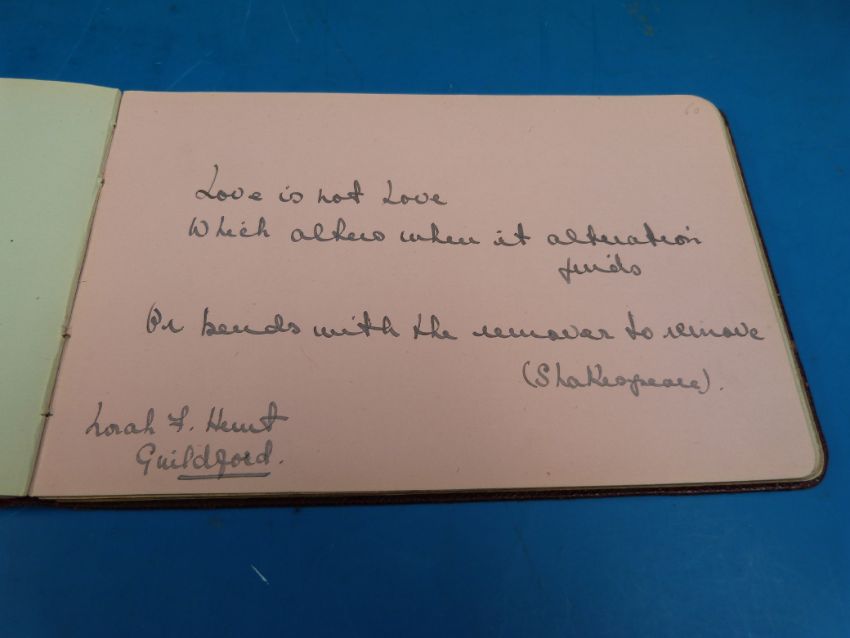 60
Love is not Love
Which alters when it alteration
finds
Or bends with the remover to remove
(Shakespeare).
Norah F. Hunt
Guildford.